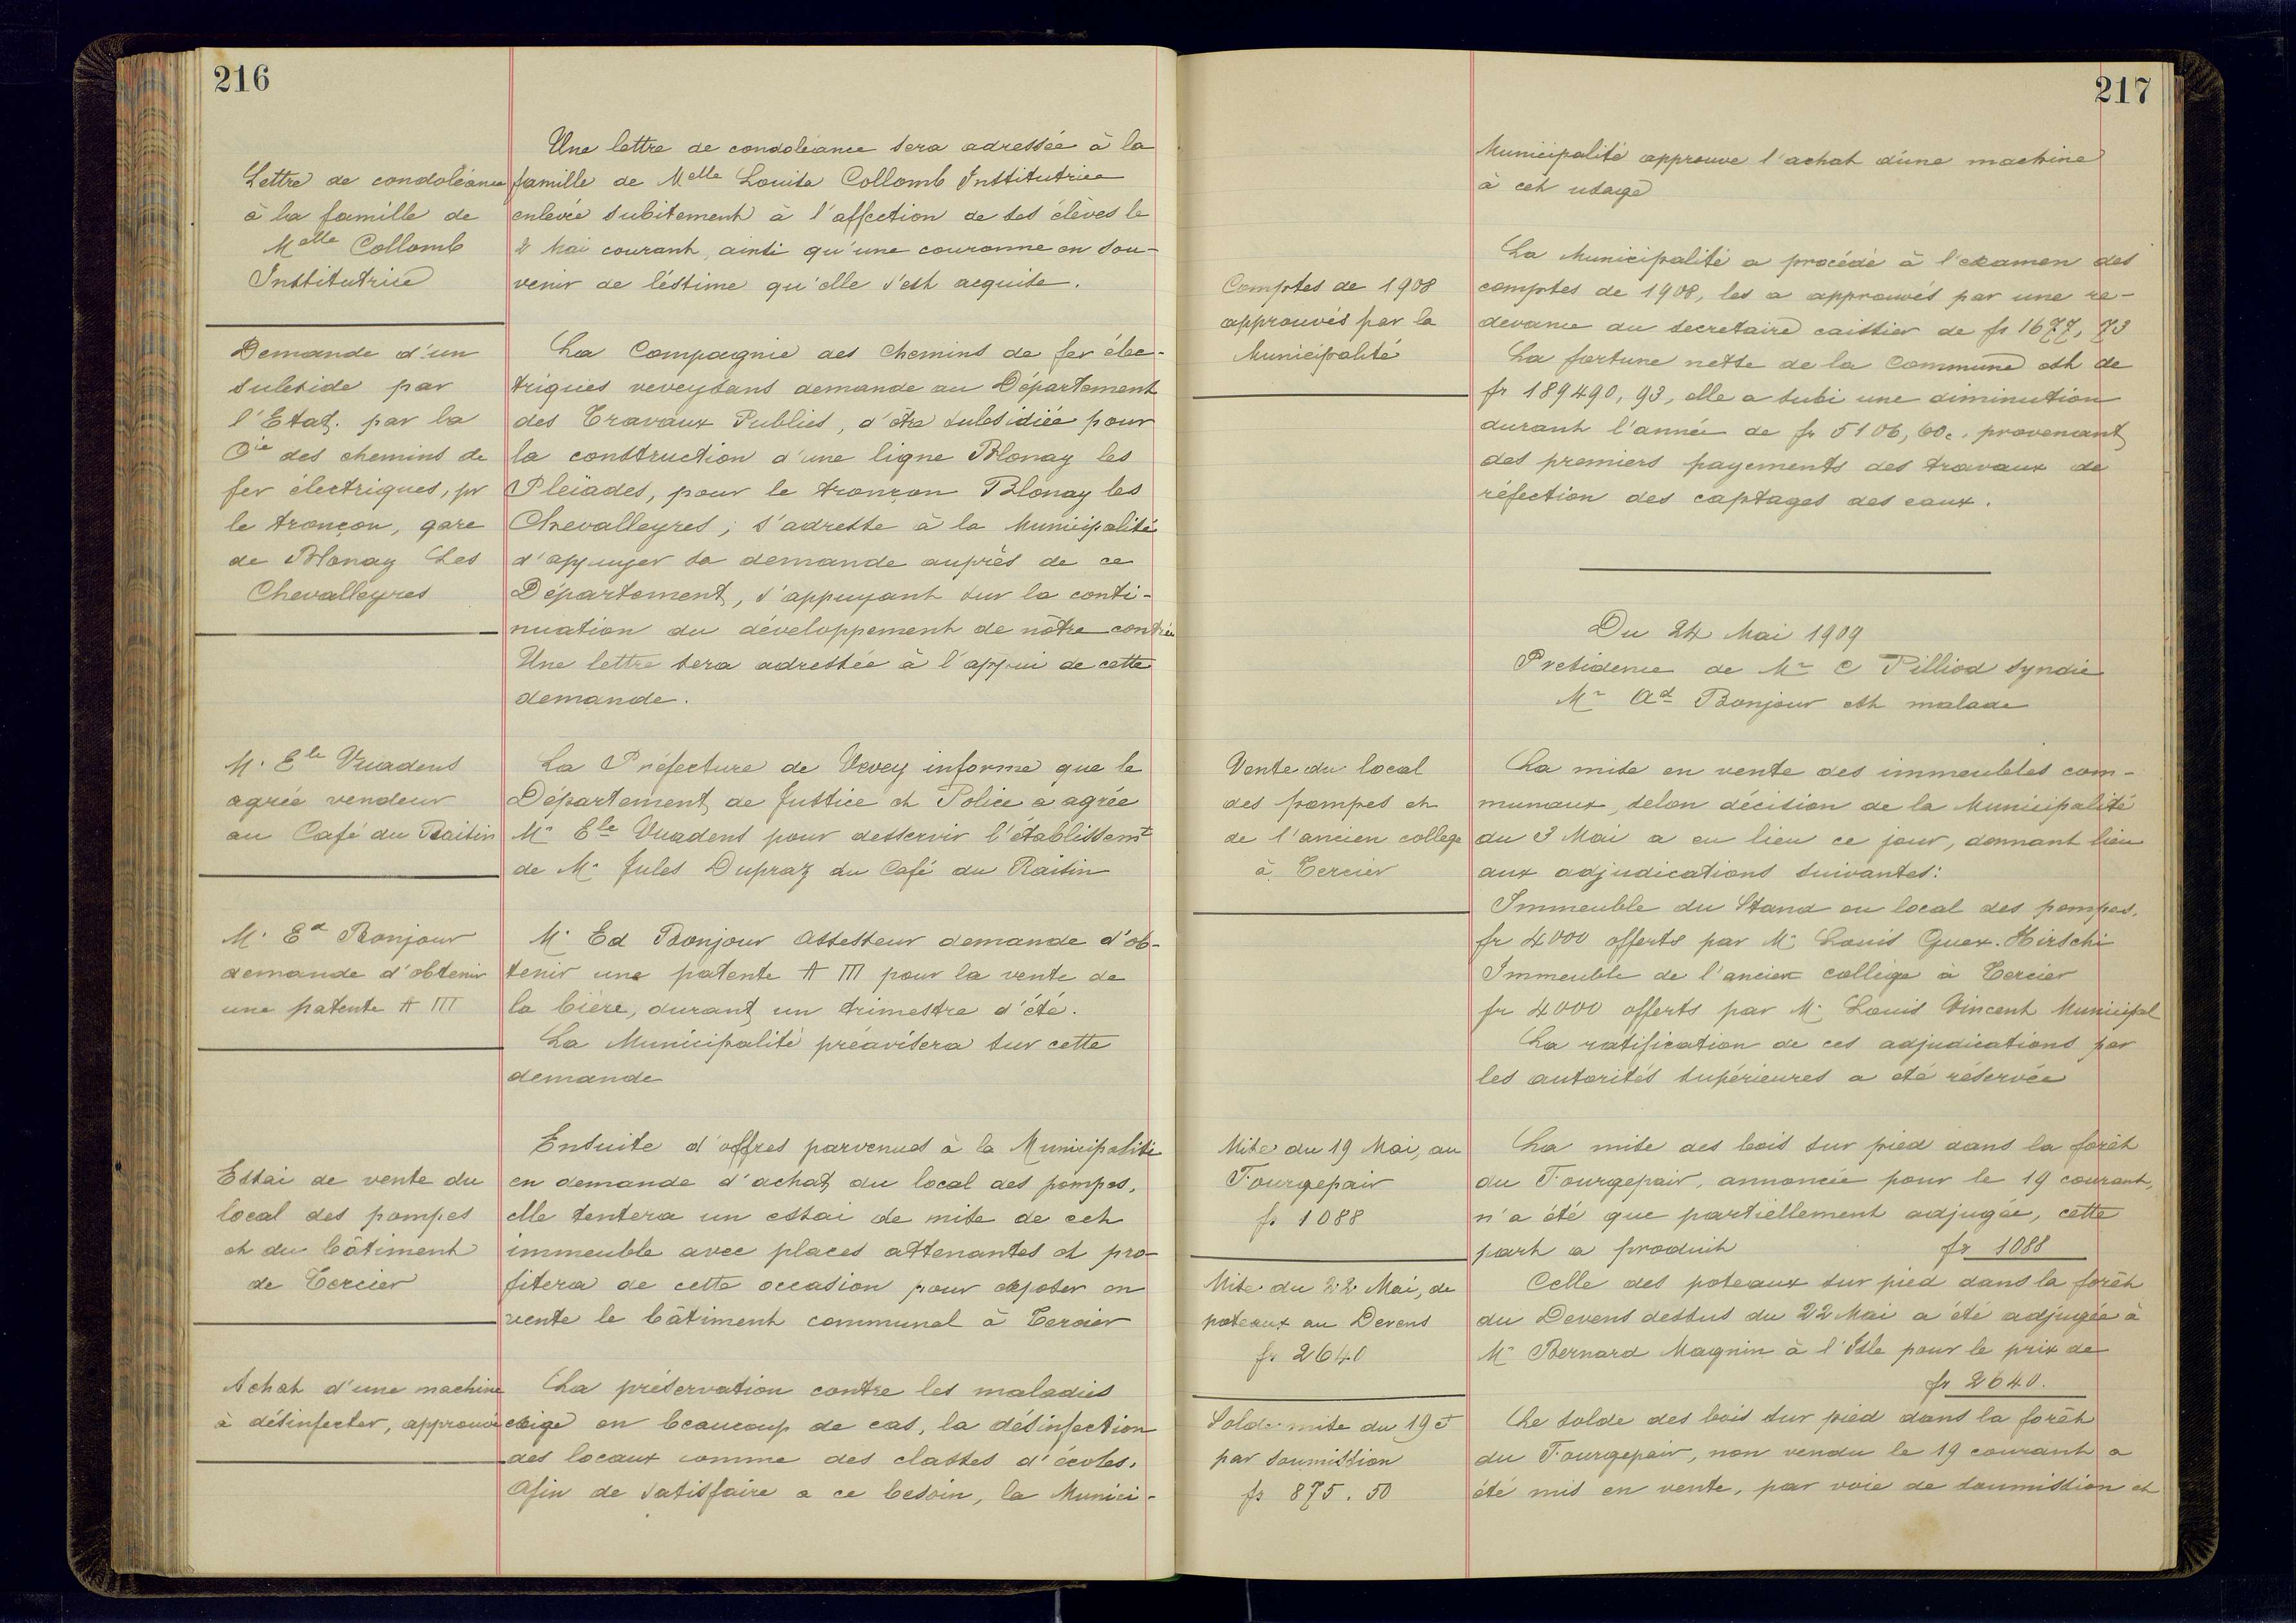 216
Lettre de condoléance
à la famille de
Melle Collomb
Institutrice
Une lettre de condoléance sera adressée à la
famille de Melle Louise Collomb Institutrice
enlevée subitement à l'affection de ses élèves le
2 Mai courant, ainsi qu'une couronne en sou-
venir de l'éstime qu'elle s'est acquise.
Demande d'un
subside par
l'Etat. par la
Cie des chemins de
fer électriques, pr
le tronçon, gare
de Blonay Les
Chevalleyres
La Compagnie des Chemins de fer élec-
triques veveysans demande au Département
des Travaux Publics, d'être subsidiée pour
la construction d'une ligne Blonay les
Pleïades, pour le tronçon Blonay les
Chevalleyres; s'adresse à la Municipalité
d'appuyer sa demande auprès de ce
Département, s'appuyant sur la conti-
nuation du développement de nôtre contrée
Une lettre sera adressée à l'appui de cette
demande.
M. Ele Vuadens
agrée vendeur
au Café du Raisin
La Préfecture de Vevey informe que le
Département de Justice et Police a agrée
Mr Ele Vuadens pour desservir l'établissemt
de Mr Jules Dupraz du Café du Raisin
M. Ed Bonjour
demande d'obtenir
une patente A III
Mr Ed Bonjour Assesseur demande d'ob-
tenir une patente A III pour la vente de
la bière, durant un trimestre d'été.
La Municipalité préavisera sur cette
demande
Essai de vente du
local des pompes
et du bâtiment
de Tercier
Ensuite d'offres parvenues à la Municipalité
en demande d'achat du local des pompes,
elle tentera un essai de mise de cet
immeuble avec places attenantes et pro-
fitera de cette occasion pour exposer en
vente le bâtiment communal à Tercier
Achat d'une machine
à désinfecter, approuvé
La préservation contre les maladies
exige en beaucoup de cas, la désinfection
des locaux comme des classes d'écoles.
Afin de satisfaire a ce besoin, la Munici-
217
Municipalité approuve l'achat d'une machine
à cet usage
Comptes de 1908
approuvés par la
Municipalité
La Municipalité a procédé à l'examen des
comptes de 1908, les a approuvés par une re-
devance du secretaire caissier de fr 1677, 73
La fortune nette de la Commune est de
fr 189490, 93, elle a subi une diminution
durant l'année de fr 5106, 60c. provenant
des premiers payements des travaux de
réfection des captages des eaux.
Du 24 Mai 1909
Présidence de Mr C Pilliod syndic
Mr Ad Bonjour est malade
Vente du local
des pompes et
de l'ancien college
à Tercier
La mise en vente des immeubles com-
munaux, selon décision de la Municipalité
du 3 Mai a eu lieu ce jour, donnant lieu
aux adjudications suivantes:
Immeuble du Stand ou local des pompes.
fr 4000 offerts par Mr Louis Guex-Hirschi
Immeuble de l'ancien collège à Tercier
fr 4000 offerts par Mr Louis Vincent Municipal
La ratification de ces adjudications par
les autorités supérieures a été réservée
Mise du 19 Mai, au
Fourgepair
fr 1088
La mise des bois sur pied dans la forêt
du Fourgepair, annoncée pour le 19 courant,
n'a été que partiellement adjugée, cette
part a produit fr 1088
Mise du 22 Mai, de
poteaux au Devens
fr 2640
Celle des poteaux sur pied dans la forêt
du Devens dessus du 22 Mai a été adjugée à
Mr Bernard Magnin à l'Isle pour le prix de
fr 2640.
Solde mise du 19 ct
par soumission
fr 875.50
Le solde des bois sur pied dans la forêt
du Fourgepair, non vendu le 19 courant a
été mis en vente, par voie de soumission et